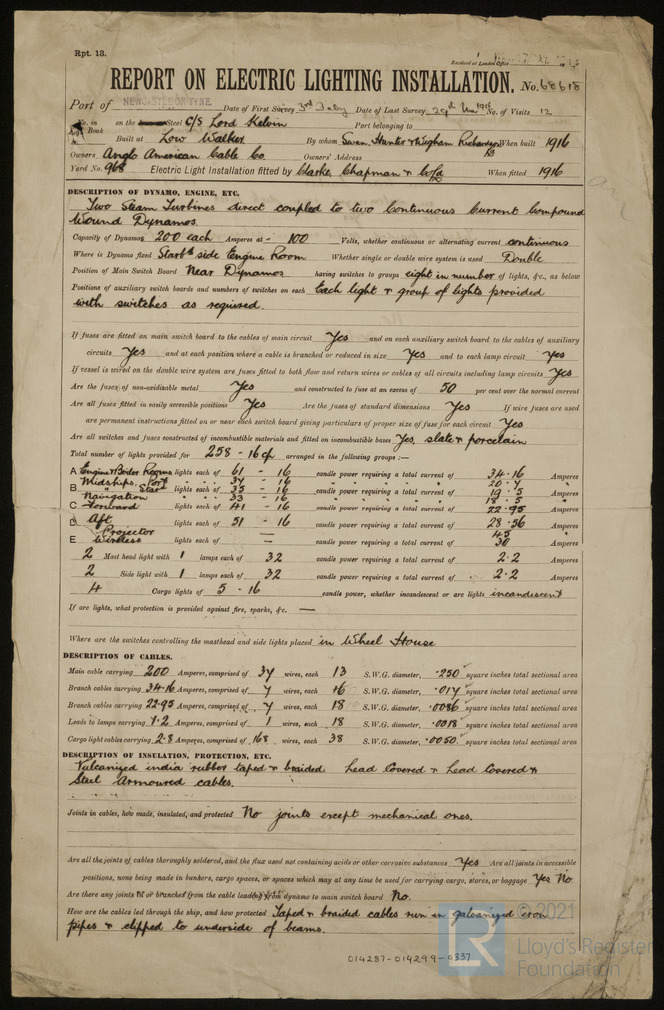 Rpt. 13.
Received at London Office
REPORT ON ELECTRIC LIGHTING INSTALLATION. No. 68618
Port of NEWCASTLE ON TYNE. Date of First Survey 3rd Feby Date of Last Survey 29th Mar 1916 No. of Visits 12
No. in Reg. Book on the Steel C/S Lord Kelvin Port belonging to
Built at Low Walker By whom Swan, Hunter & Wigham Richardson Ld When built 1916
Owners Anglo American Cable Co. Owners' Address
Yard No. 968 Electric Light Installation fitted by Clarke, Chapman & Co Ld When fitted 1916
DESCRIPTION OF DYNAMO, ENGINE, ETC.
Two Steam Turbines direct coupled to two Continuous Current Compound
Wound Dynamos.
Capacity of Dynamos 200 each Amperes at - 100 Volts, whether continuous or alternating current continuous
Where is Dynamo fixed Starbd side Engine Room Whether single or double wire system is used Double
Position of Main Switch Board Near Dynamos having switches to groups eight in number of lights, &c., as below
Positions of auxiliary switch boards and numbers of switches on each Each light & group of lights provided
with switches as required.
If fuses are fitted on main switch board to the cables of main circuit Yes and on each auxiliary switch board to the cables of auxiliary
circuits Yes and at each position where a cable is branched or reduced in size Yes and to each lamp circuit Yes
If vessel is wired on the double wire system are fuses fitted to both flow and return wires or cables of all circuits including lamp circuits Yes
Are the fuses of non-oxidizable metal Yes and constructed to fuse at an excess of 50 per cent over the normal current
Are all fuses fitted in easily accessible positions Yes Are the fuses of standard dimensions Yes If wire fuses are used
are permanent instructions fitted on or near each switch board giving particulars of proper size of fuse for each circuit Yes
Are all switches and fuses constructed of incombustible materials and fitted on incombustible bases Yes, slate & porcelain
Total number of lights provided for 258 - 16 cp arranged in the following groups :—
A Engine & Boiler Rooms lights each of 61 - 16 candle power requiring a total current of 34.16 Amperes
Midships, Port 37 - 16 20.7
B " Star lights each of 35 - 16 candle power requiring a total current of 19.5 Amperes
Navigation 33 - 16 18.5
C Forward lights each of 41 - 16 candle power requiring a total current of 22.95 Amperes
D Aft lights each of 51 - 16 candle power requiring a total current of 28.56 Amperes
Projector — 45 "
E Wireless lights each of — candle power requiring a total current of 30 Amperes
2 Mast head light with 1 lamps each of 32 candle power requiring a total current of 2.2 Amperes
2 Side light with 1 lamps each of 32 candle power requiring a total current of 2.2 Amperes
4 Cargo lights of 5 - 16 candle power, whether incandescent or arc lights incandescent
If arc lights, what protection is provided against fire, sparks, &c. —
Where are the switches controlling the masthead and side lights placed in Wheel House
DESCRIPTION OF CABLES.
Main cable carrying 200 Amperes, comprised of 37 wires, each 13 S.W.G. diameter, .250 square inches total sectional area
Branch cables carrying 34.16 Amperes, comprised of 7 wires, each 16 S.W.G. diameter, .017 square inches total sectional area
Branch cables carrying 22.95 Amperes, comprised of 7 wires, each 18 S.W.G. diameter, .0086 square inches total sectional area
Leads to lamps carrying 1.2 Amperes, comprised of 1 wires, each 18 S.W.G. diameter, .0018 square inches total sectional area
Cargo light cables carrying 2.8 Amperes, comprised of 168 wires, each 38 S.W.G. diameter, .0050 square inches total sectional area
DESCRIPTION OF INSULATION, PROTECTION, ETC.
Vulcanized india rubber taped & braided Lead Covered & Lead Covered &
Steel Armoured cables.
Joints in cables, how made, insulated, and protected No joints except mechanical ones.
Are all the joints of cables thoroughly soldered, and the flux used not containing acids or other corrosive substances Yes Are all joints in accessible
positions, none being made in bunkers, cargo spaces, or spaces which may at any time be used for carrying cargo, stores, or baggage Yes No
Are there any joints in or branches from the cable leading from dynamo to main switch board No.
How are the cables led through the ship, and how protected Taped & braided cables run in galvanized iron
pipes & clipped to underside of beams.
© 2021
LR Lloyd's Register
Foundation
014287-014299-0337